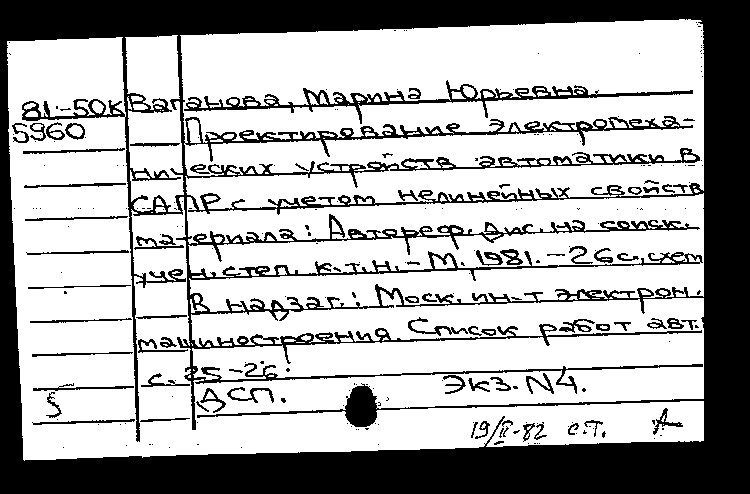 81-50К Ваганова, Марина Юрьевна.
5960 Проектирование электромеха-
нических устройств автоматики в
САПР с учетом нелинейных свойств
материала: Автореф. дис. на соиск.
учен. степ. к.т.н. - М., 1981. - 26 с., схем
В надзаг.: Моск. ин-т электрон.
машиностроения. Список работ авт.:
с. 25-26.
ДСП. Экз. N4.
19/II-82 с.т.